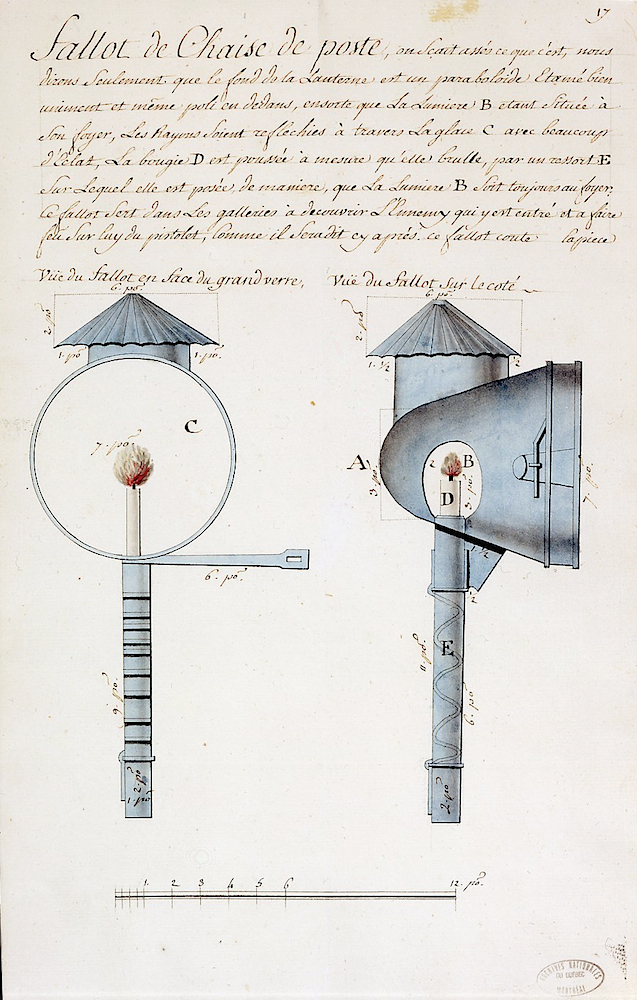 17
Fallot de Chaise de poste, on Scait assés ce que c'est, nous
dirons Seulement que le fond de la Lanterne est un paraboloïde Etamé bien
uniment et même poli en dedans, ensorte que La Lumiere B etant Située à
Son foyer, Les Rayons Soient reflechies à travers La glace C avec beaucoup
d'Eclat, La bougie D est poussée à mesure qu'elle brulle, par un ressort E
Sur Lequel elle est posée, de maniere, que La Lumiere B Soit toujours au foyer,
Ce fallot Sert dans Les galleries à decouvrir L'Ennemy qui y est entré et a faire
feu Sur luy du pistolet, Comme il Sera dit cy aprés. ce fallot coute la piece
Vüe du fallot en face du grand verre, Vüe du Fallot Sur le coté
6. po. 6. po.
2. po 2. po
1. po 1. po. 1. ½ ½
C
7. po. A 2 B
3. po D 3. po 7. po
1. ½
6. po. ½
E
11. po. 6. po.
9. po.
2. po 2. po
1. po
1. 2 3 4 5 6 12. po.
ARCHIVES NATIONALES
DU QUÉBEC
MONTRÉAL